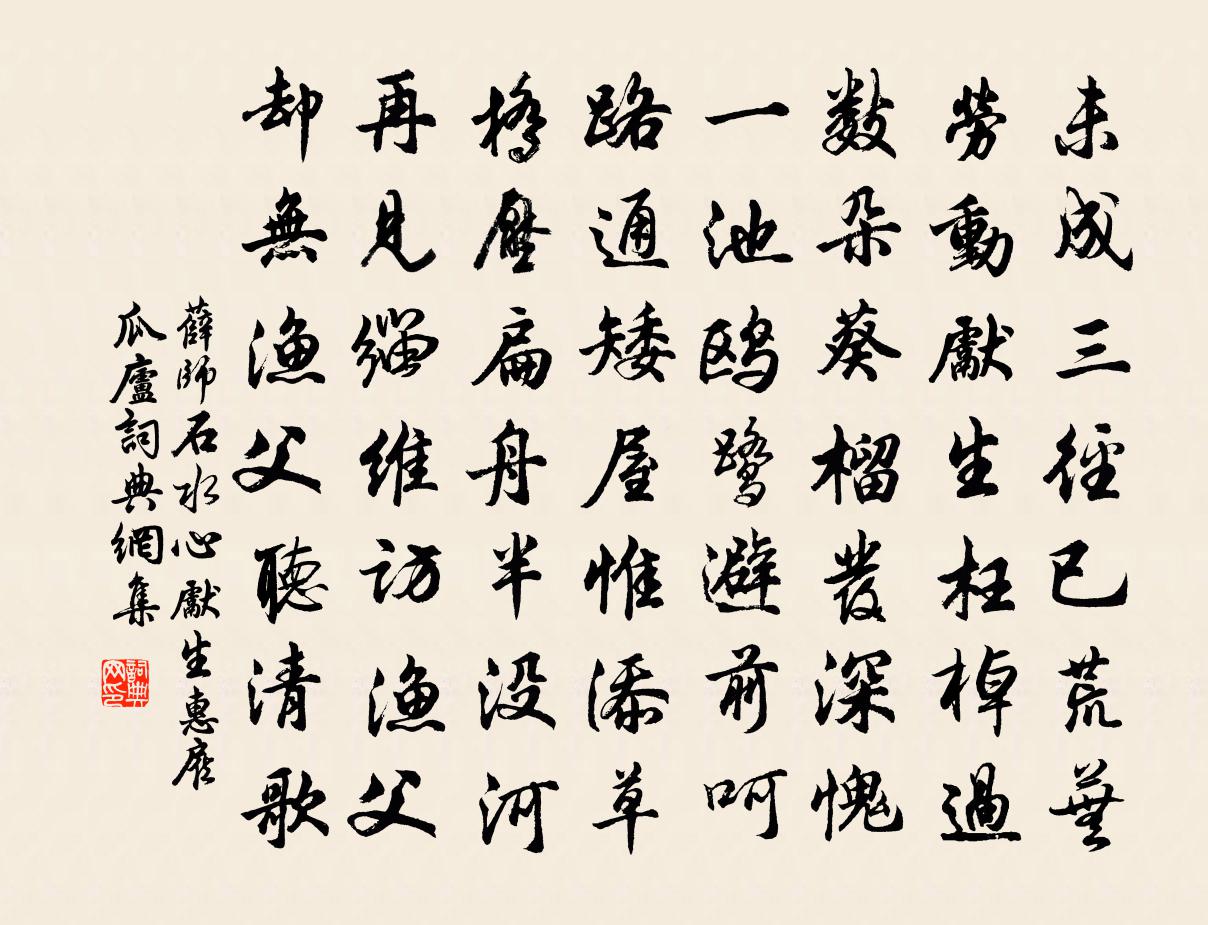 未成三徑已荒蕪
勞動獻生枉棹過
數朵葵榴發深愧
一池鷗鷺避前呵
路通矮屋惟添草
橋壓扁舟半没河
再見纙維訪漁父
却無漁父聽清歌
薛師石水心獻生惠顧
瓜廬詞典網集
詞典网印